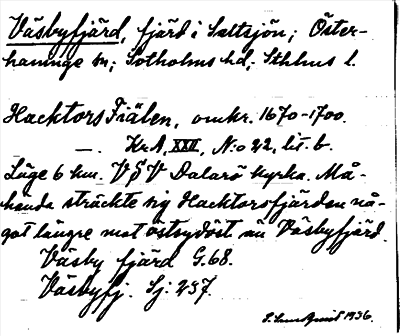 Väsbyfjärd, fjärd i Saltsjön; Öster-
haninge sn; Sotholms hd, Sthlms l.
Hacktors Fiälen, omkr. 1670-1700.
—. Kr.A. XXII, N:o 22, lit. b.
Läge 6 km. VSV Dalarö kyrka. Må-
hända sträckte sig Hacktorsfjärden nå-
got längre mot ostsydöst än Väsbyfjärd.
Väsby fjärd G.68.
Väsbyfj. Sj. 257.
1936.